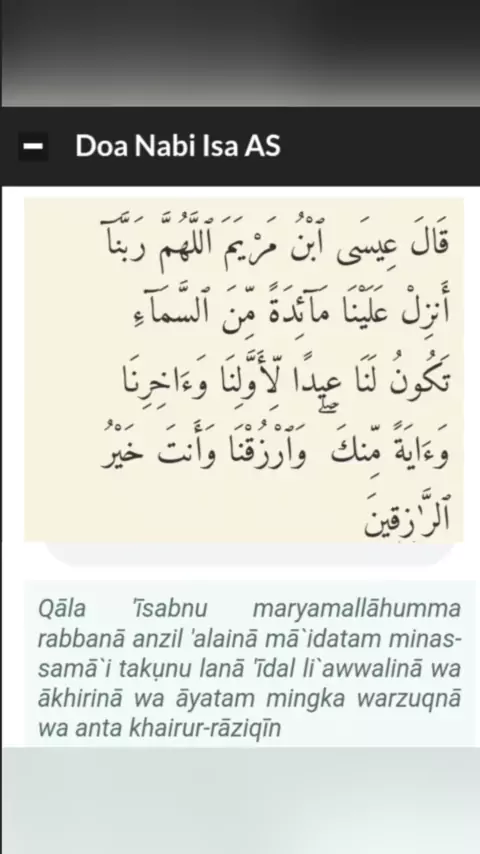 Doa Nabi Isa AS
قَالَ عِيسَى ٱبْنُ مَرْيَمَ ٱللَّهُمَّ رَبَّنَآ
أَنزِلْ عَلَيْنَا مَآئِدَةً مِّنَ ٱلسَّمَآءِ
تَكُونُ لَنَا عِيدًا لِّأَوَّلِنَا وَءَاخِرِنَا
وَءَايَةً مِّنكَ ۖ وَٱرْزُقْنَا وَأَنتَ خَيْرُ
ٱلرَّٰزِقِينَ
Qāla 'īsabnu maryamallāhumma
rabbanā anzil 'alainā mā`idatam minas-
samā`i takụnu lanā 'īdal li`awwalinā wa
ākhirinā wa āyatam mingka warzuqnā
wa anta khairur-rāziqīn